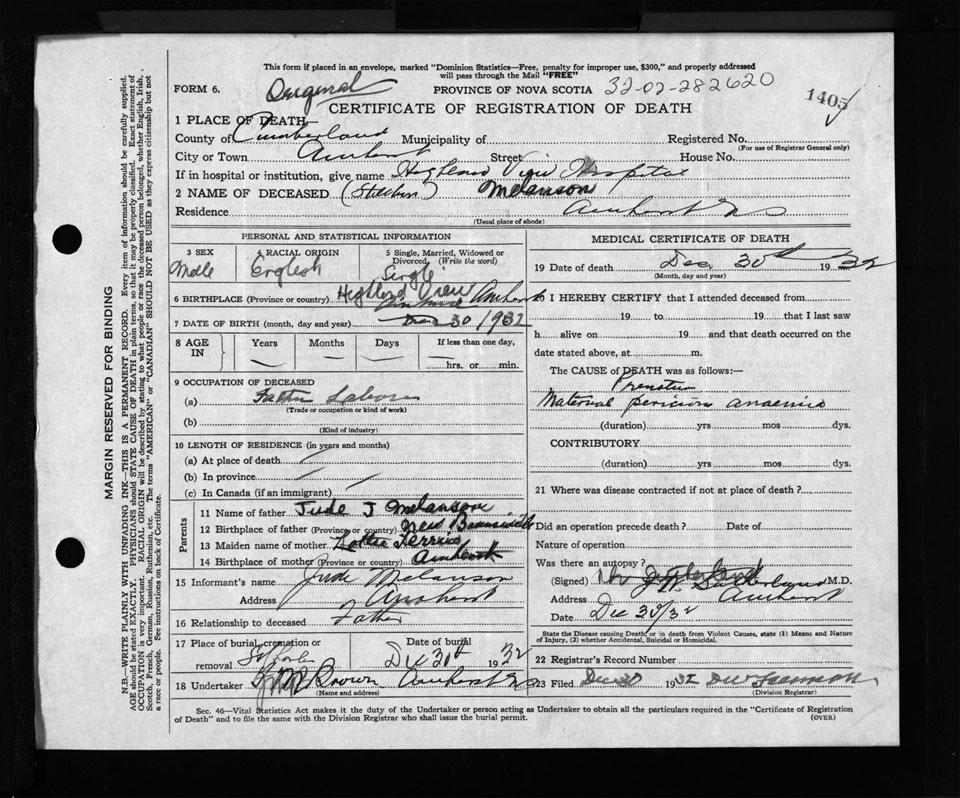 This form if placed in an envelope, marked "Dominion Statistics—Free, penalty for improper use, $300," and properly addressed
will pass through the Mail "FREE"
FORM 6. Original PROVINCE OF NOVA SCOTIA 32-02-282620
1405
CERTIFICATE OF REGISTRATION OF DEATH
1 PLACE OF DEATH—
County of Cumberland Municipality of Registered No.
(For use of Registrar General only)
City or Town Amherst Street House No.
If in hospital or institution, give name Highland View Hospital
2 NAME OF DECEASED (Stillborn) Melanson
Residence Amherst NS
(Usual place of abode)
PERSONAL AND STATISTICAL INFORMATION
3 SEX 4 RACIAL ORIGIN 5 Single, Married, Widowed or
Divorced, (Write the word)
Male English Single
6 BIRTHPLACE (Province or country) Highland View Amherst
7 DATE OF BIRTH (month, day and year) Dec 30/1932
8 AGE IN Years Months Days If less than one day,
hrs. or min.
9 OCCUPATION OF DECEASED
(a) Father Laborer
(Trade or occupation or kind of work)
(b)
(Kind of industry)
10 LENGTH OF RESIDENCE (in years and months)
(a) At place of death
(b) In province
(c) In Canada (if an immigrant)
Parents
11 Name of father Jude J Melanson
12 Birthplace of father (Province or country) New Brunswick
13 Maiden name of mother Lottie
14 Birthplace of mother (Province or country) Amherst
15 Informant's name Jude Melanson
Address Amherst
16 Relationship to deceased Father
17 Place of burial, cremation or removal Date of burial Dec 30th 1932
18 Undertaker Brown Amherst NS
(Name and address)
MEDICAL CERTIFICATE OF DEATH
19 Date of death Dec 30th 1932
(Month, day and year)
20 I HEREBY CERTIFY that I attended deceased from
19 to 19 that I last saw
h alive on 19 and that death occurred on the
date stated above, at m.
The CAUSE of DEATH was as follows:—
Maternal
(duration) yrs mos dys.
CONTRIBUTORY
(duration) yrs mos dys.
21 Where was disease contracted if not at place of death?
Did an operation precede death? Date of
Nature of operation
Was there an autopsy?
(Signed) Sutherland M.D.
Address Amherst
Date Dec 30/32
State the Disease causing Death, or in death from Violent Causes, state (1) Means and Nature
of Injury, (2) whether Accidental, Suicidal or Homicidal.
22 Registrar's Record Number
23 Filed Dec 30 1932
(Division Registrar)
Sec. 46—Vital Statistics Act makes it the duty of the Undertaker or person acting as Undertaker to obtain all the particulars required in the "Certificate of Registration
of Death" and to file the same with the Division Registrar who shall issue the burial permit.
(OVER)
MARGIN RESERVED FOR BINDING
N.B.—WRITE PLAINLY WITH UNFADING INK—THIS IS A PERMANENT RECORD. Every item of information should be carefully supplied.
AGE should be stated EXACTLY. PHYSICIANS should STATE CAUSE OF DEATH in plain terms, so that it may be properly classified. Exact statement of
OCCUPATION is very important. RACIAL ORIGIN will be described by stating to what people or race the deceased person belonged, whether English, Irish,
Scotch, French, German, Russian, Ruthenian, etc. The terms "AMERICAN" or "CANADIAN" SHOULD NOT BE USED as they express citizenship but not
a race or people. See instructions on back of Certificate.